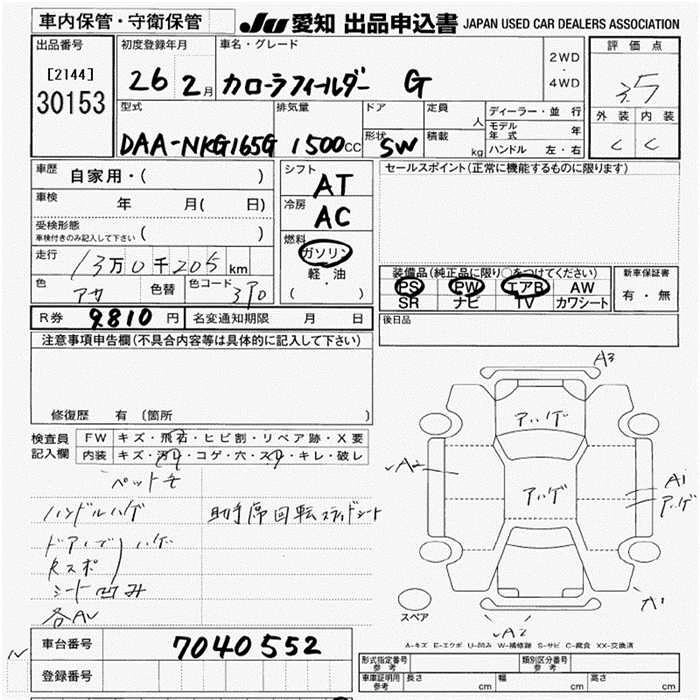 車内保管・守衛保管
JU 愛知 出品申込書 JAPAN USED CAR DEALERS ASSOCIATION
出品番号
[2144]
30153
初度登録年月
26 2月
車名・グレード
カローラフィールダー G
2WD
・
4WD
評価点
3.5
外装 内装
C C
型式
DAA-NKG165G
排気量
1500cc
ドア
形状
SW
定員 人
積載 kg
ディーラー・並行
モデル年式 年
ハンドル 左・右
車歴 自家用・( )
車検 年 月( 日)
受検形態
車検付きのみ記入して下さい ( )
走行 13万0千205km
色 アカ 色替 色コード 3P0
シフト AT
冷房 AC
燃料
ガソリン
・
軽油
( )
セールスポイント(正常に機能するものに限ります)
装備品(純正品に限り○をつけてください)
PS PW エアB AW
SR ナビ TV カワシート
新車保証書
有・無
R券 9810円 名変通知期限 月 日
後日品
注意事項申告欄(不具合内容等は具体的に記入して下さい)
修復歴 有(箇所 )
検査員記入欄
FW キズ・飛石・ヒビ割・リペア跡・X要
内装 キズ・汚れ・コゲ・穴・スレ・キレ・破レ
ペットモ
ハンドルハゲ
助手席回転スライドシート
ドア ハゲ
Rスポ
シート凹み
各AV
A3
アハゲ
A2
アハゲ
A1
アハゲ
A1
A2
スペア
A-キズ E-エクボ U-凹み W-補修跡 S-サビ C-腐食 XX-交換済
車台番号 7040552
登録番号
型式指定番号 参考
類別区分番号 参考
車庫証明用 参考 長さ cm 幅 cm 高さ cm